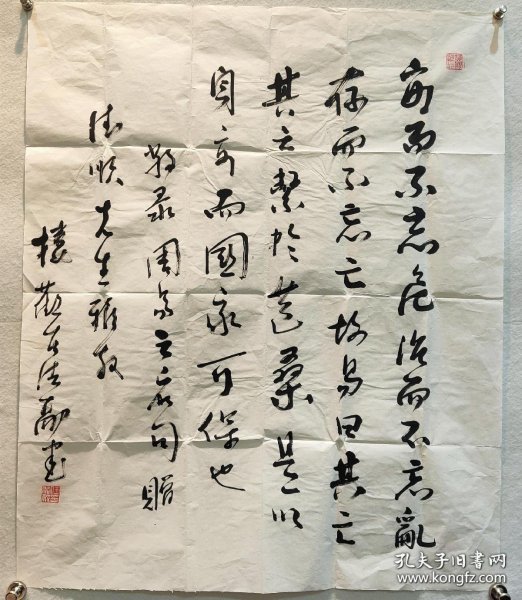 安而不忘危治而不忘亂
存而不忘亡故易曰其亡
其亡繫於苞桑是以
身安而國家可保也
敬录周易之名句贈
順先生雅教
樓觀台法融书
孔夫子旧书网
www.kongfz.com